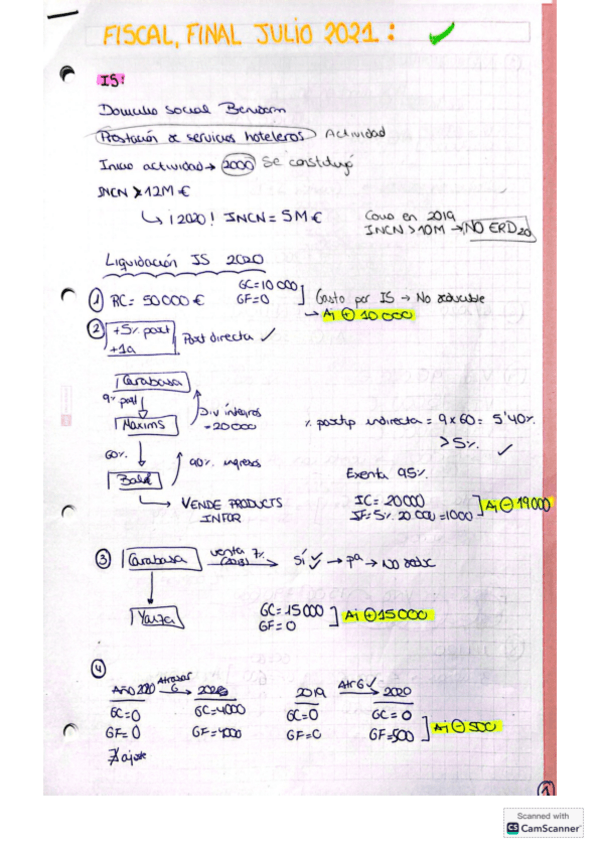 FISCAL, FINAL JULIO 2021: ✓
IS:
Domicilio Social Benidorm
Prestación de servicios hoteleros Actividad
Inicio actividad → 2000 Se constituyó
INCN > 12M €
↳ ¡2020! INCN = 5M €
Como en 2019
INCN > 10M → NO ERD 20
Liquidación IS 2020
① RC = 50000 €
GC = 10 000
GF = 0
Gasto por IS → No deducible
→ Aj ⊕ 10 000
② +5% part
+1a
Part directa ✓
Carabasa
9% part
Maxims
Div íntegros
= 20000
60%
90% ingresos
→ VENDE PRODUCTS
INFOR
% partip indirecta = 9 x 60 = 5'40%
> 5% ✓
Exenta 95%
IC = 20000
IF = 5% 20 000 = 1000
Aj ⊖ 19000
③ Carabasa
venta 7%
Sí ✓ → pª → No deduc
GC = 15 000
GF = 0
Aj ⊕ 15 000
④
Año 2020
Atrasar
G
GC = 0
GC = 4000
GF = 0
GF = 4000
∄ ajuste
2019
Atr G ✓
2020
GC = 0
GC = 0
GF = 0
GF = 500
Aj ⊖ 500
1
Scanned with
CS CamScanner